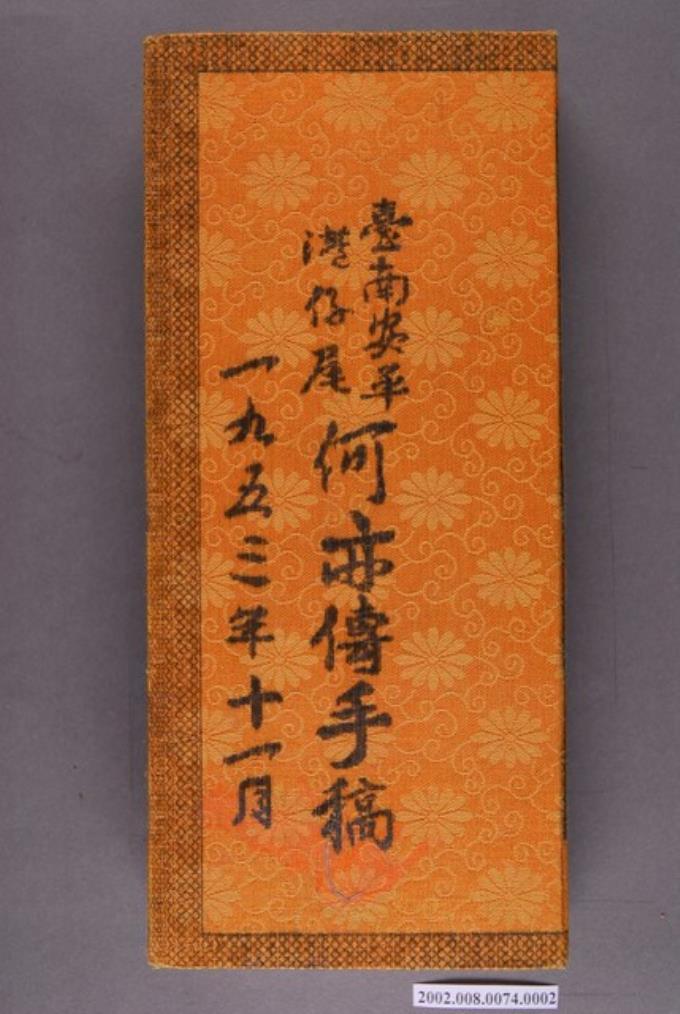 臺南安平
港仔尾
何亦傳手稿
一九五三年十一月
2002.008.0074.0002